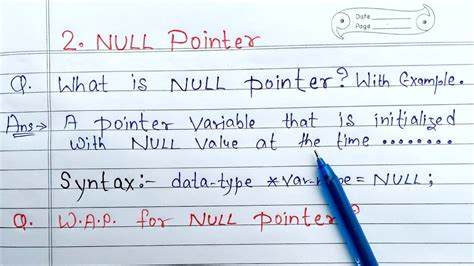 Date
Page
2. NULL Pointer
Q. What is NULL pointer? With Example.
Ans → A pointer variable that is initialized
with NULL value at the time ........
Syntax:- data-type *var-name = NULL;
Q. W.A.P. for NULL pointer?